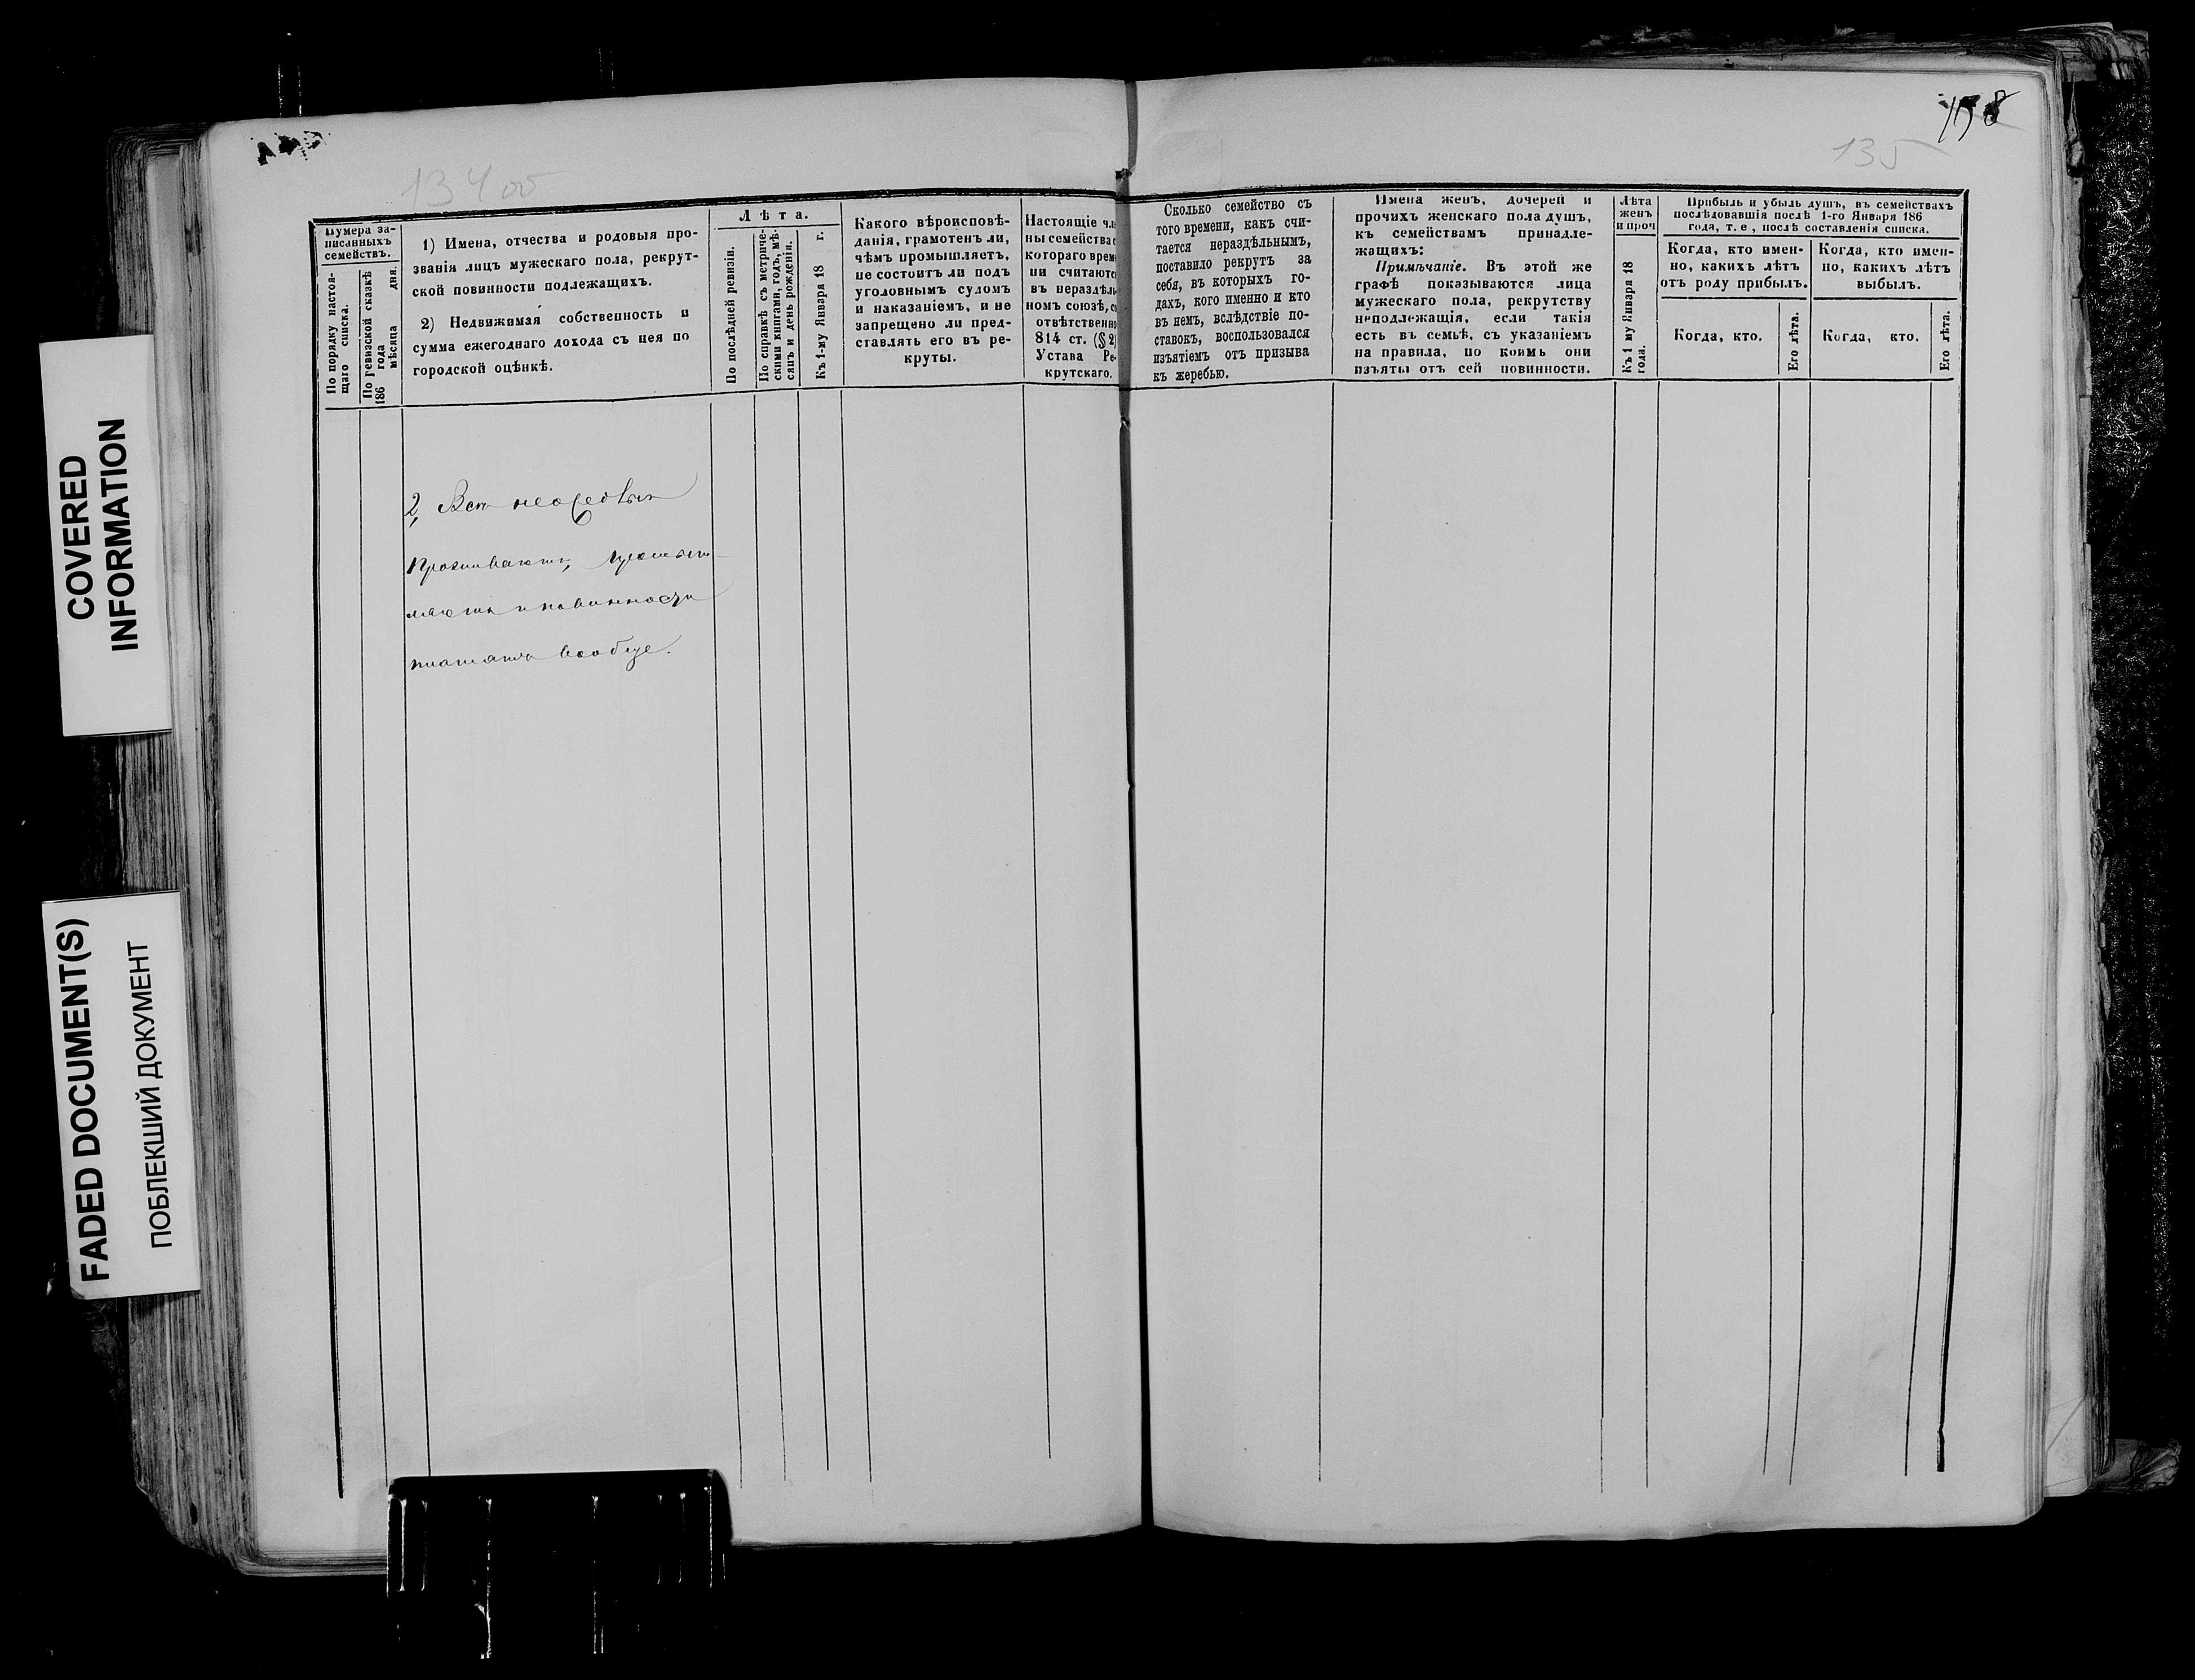 COVERED
INFORMATION
FADED DOCUMENT(S)
ПОБЛЕКШИЙ ДОКУМЕНТ
134 об
158
135
Нумера за-
писанныхъ
семействъ.
По порядку настоя-
щаго списка.
По ревизской сказкѣ
186 года
мѣсяца дня.
1) Имена, отчества и родовыя про-
званія лицъ мужескаго пола, рекрут-
ской повинности подлежащихъ.
2) Недвижимая собственность и
сумма ежегоднаго дохода съ нея по
городской оцѣнкѣ.
Лѣта.
По послѣдней ревизіи.
По справкѣ съ метриче-
скими книгами, годъ, мѣ-
сяцъ и день рожденія.
Къ 1-му Января 18 г.
Какого вѣроисповѣ-
данія, грамотенъ ли,
чѣмъ промышляетъ,
не состоитъ ли подъ
уголовнымъ судомъ
и наказаніемъ, и не
запрещено ли пред-
ставлять его въ ре-
круты.
Настоящіе чле
ны семейства с
котораго врем
ни считаютс
въ нераздѣль
номъ союзѣ, со
отвѣтственно
814 ст. (§ 2)
Устава Ре-
крутскаго.
Сколько семейство съ
того времени, какъ счи-
тается нераздѣльнымъ,
поставило рекрутъ за
себя, въ которыхъ го-
дахъ, кого именно и кто
въ немъ, вслѣдствіе по-
ставокъ, воспользовался
изъятіемъ отъ призыва
къ жеребью.
Имена женъ, дочерей и
прочихъ женскаго пола душъ,
къ семействамъ принадле-
жащихъ:
Примѣчаніе. Въ этой же
графѣ показываются лица
мужескаго пола, рекрутству
неподлежащія, если такія
есть въ семьѣ, съ указаніемъ
на правила, по коимъ они
изъяты отъ сей повинности.
Лѣта
женъ
и проч
Къ 1 му Января 18
года.
Прибыль и убыль душъ, въ семействахъ
послѣдовавшія послѣ 1-го Января 186
года, т. е , послѣ составленія списка.
Когда, кто имен-
но, какихъ лѣтъ
отъ роду прибылъ.
Когда, кто.
Его лѣта.
Когда, кто имен-
но, какихъ лѣтъ
выбылъ.
Когда, кто.
Его лѣта.
2, Всѣ неосѣдлы
проживаютъ, промыш-
ляютъ и повинности
платятъ вообще.